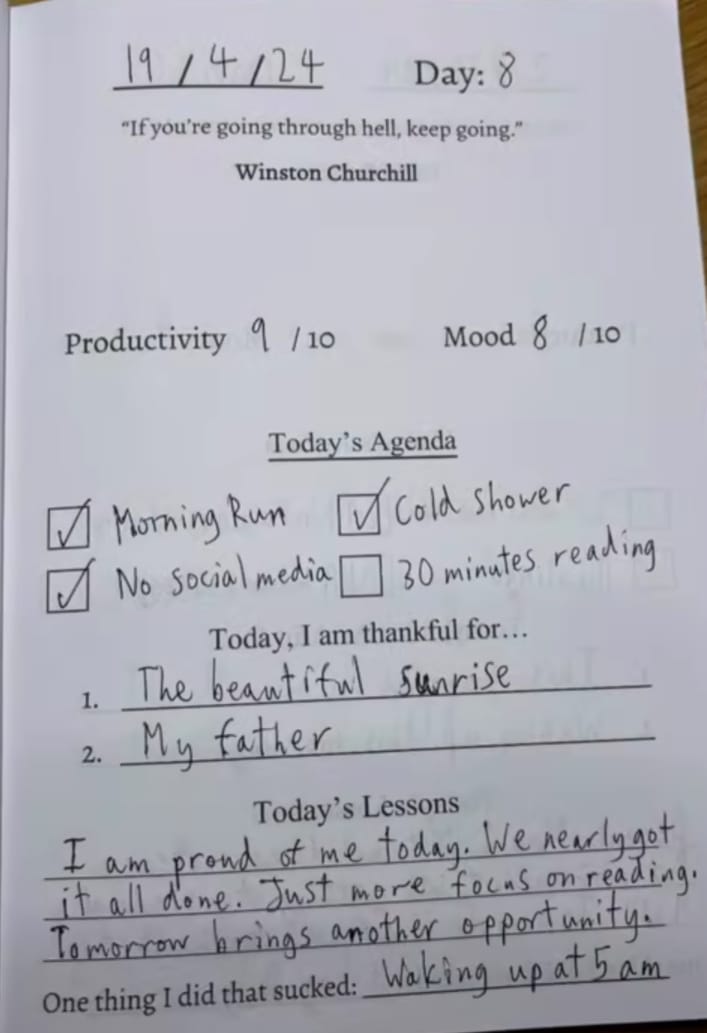 19 / 4 / 24 Day: 8
“If you’re going through hell, keep going.”
Winston Churchill
Productivity 9 / 10 Mood 8 / 10
Today’s Agenda
Morning Run Cold shower
No social media 30 minutes reading
Today, I am thankful for…
1. The beautiful sunrise
2. My father
Today’s Lessons
I am proud of me today. We nearly got
it all done. Just more focus on reading.
Tomorrow brings another opportunity.
One thing I did that sucked: Waking up at 5 am